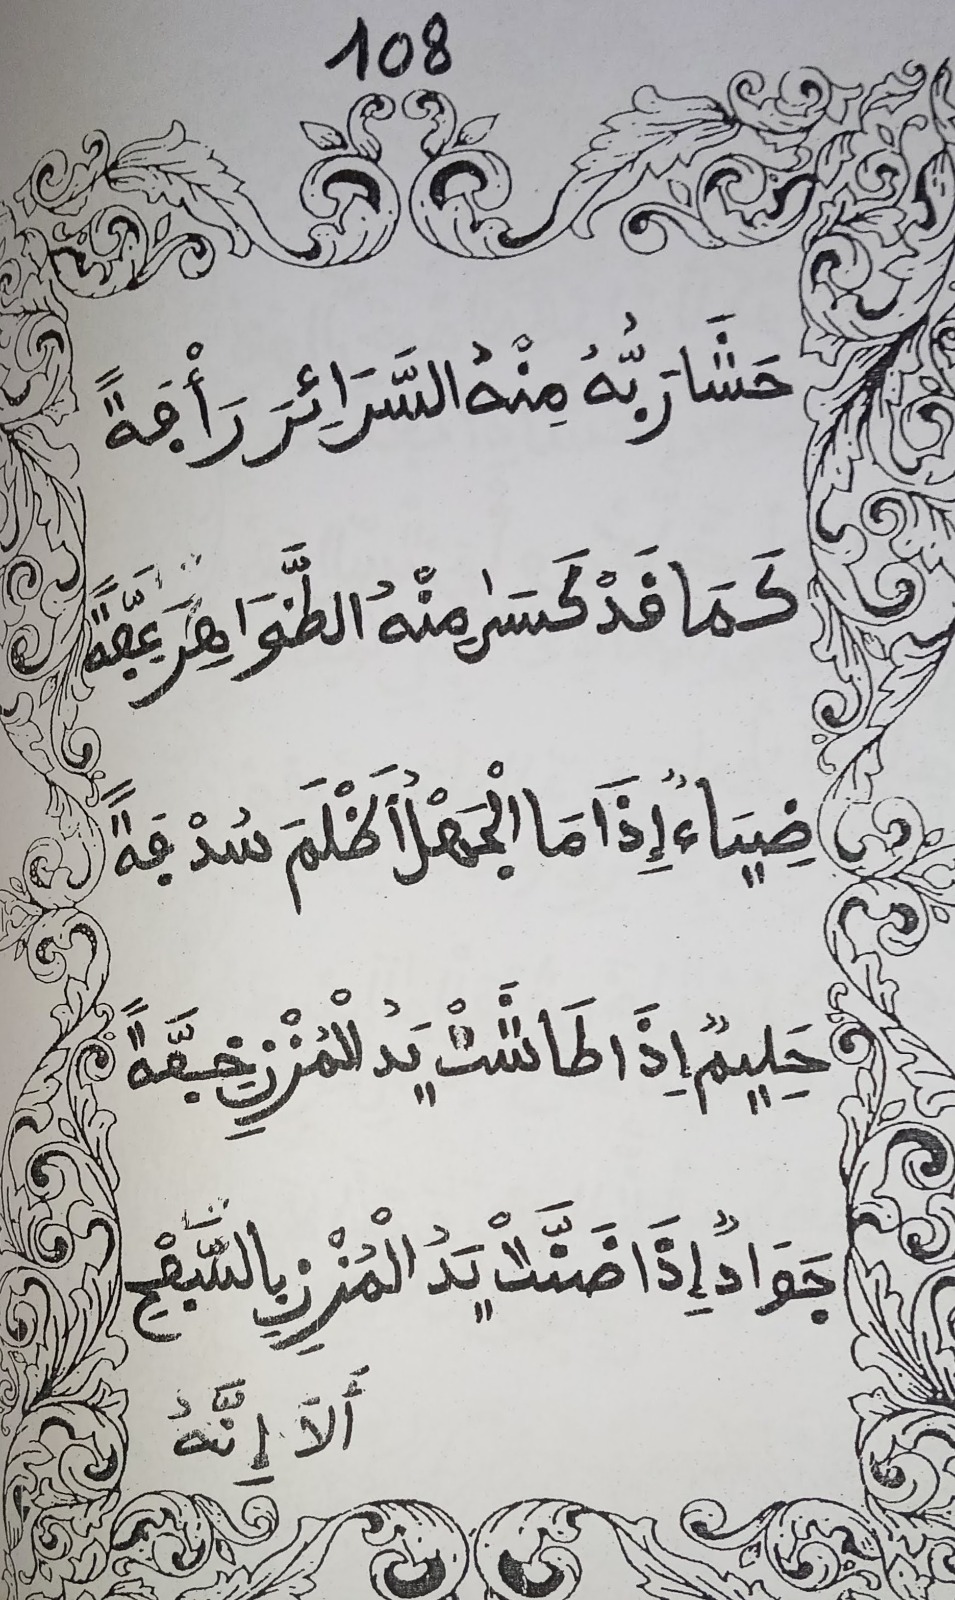 108
حَشَا رَبُّهُ مِنْهُ السَّرَائِرَ رَأْفَةً
كَمَا قَدْ كَسَىٰ مِنْهُ الظَّوَاهِرَ عِفَّةً
ضِيَاءٌ إِذَا مَا الْجَهْلُ أَظْلَمَ سُدْفَةً
حَلِيمٌ إِذَا طَاشَتْ يَدُ الْمُزْنِ خِفَّةً
جَوَادٌ إِذَا ضَنَّتْ يَدُ الْمُزْنِ بِالسَّقْيِ
أَلَا إِنَّهُ